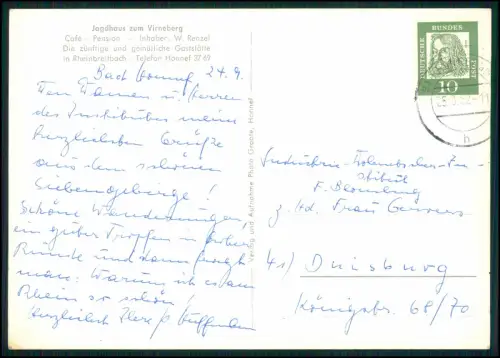 Jagdhaus zum Virneberg
Café - Pension - Inhaber: W. Rensel
Die zünftige und gemütliche Gaststätte
in Rheinbreitbach - Telefon Honnef 3769
Bad Honnef 24.9.
Den Damen u. Herren
des Institutes meine
herzlichsten Grüße
aus dem schönen
Siebengebirge!
Schöne Wanderungen,
ein guter Tropfen in froher
Runde und dann fragt
man: Warum ist es am
Rhein so schön!
Herzlichst Ihre
Verlag und Aufnahme Photo Honnef
DEUTSCHE BUNDESPOST
10
h
Industrie-
F. Blomburg
z. Hd. Frau
41) Duisburg
Königstr. 68/70